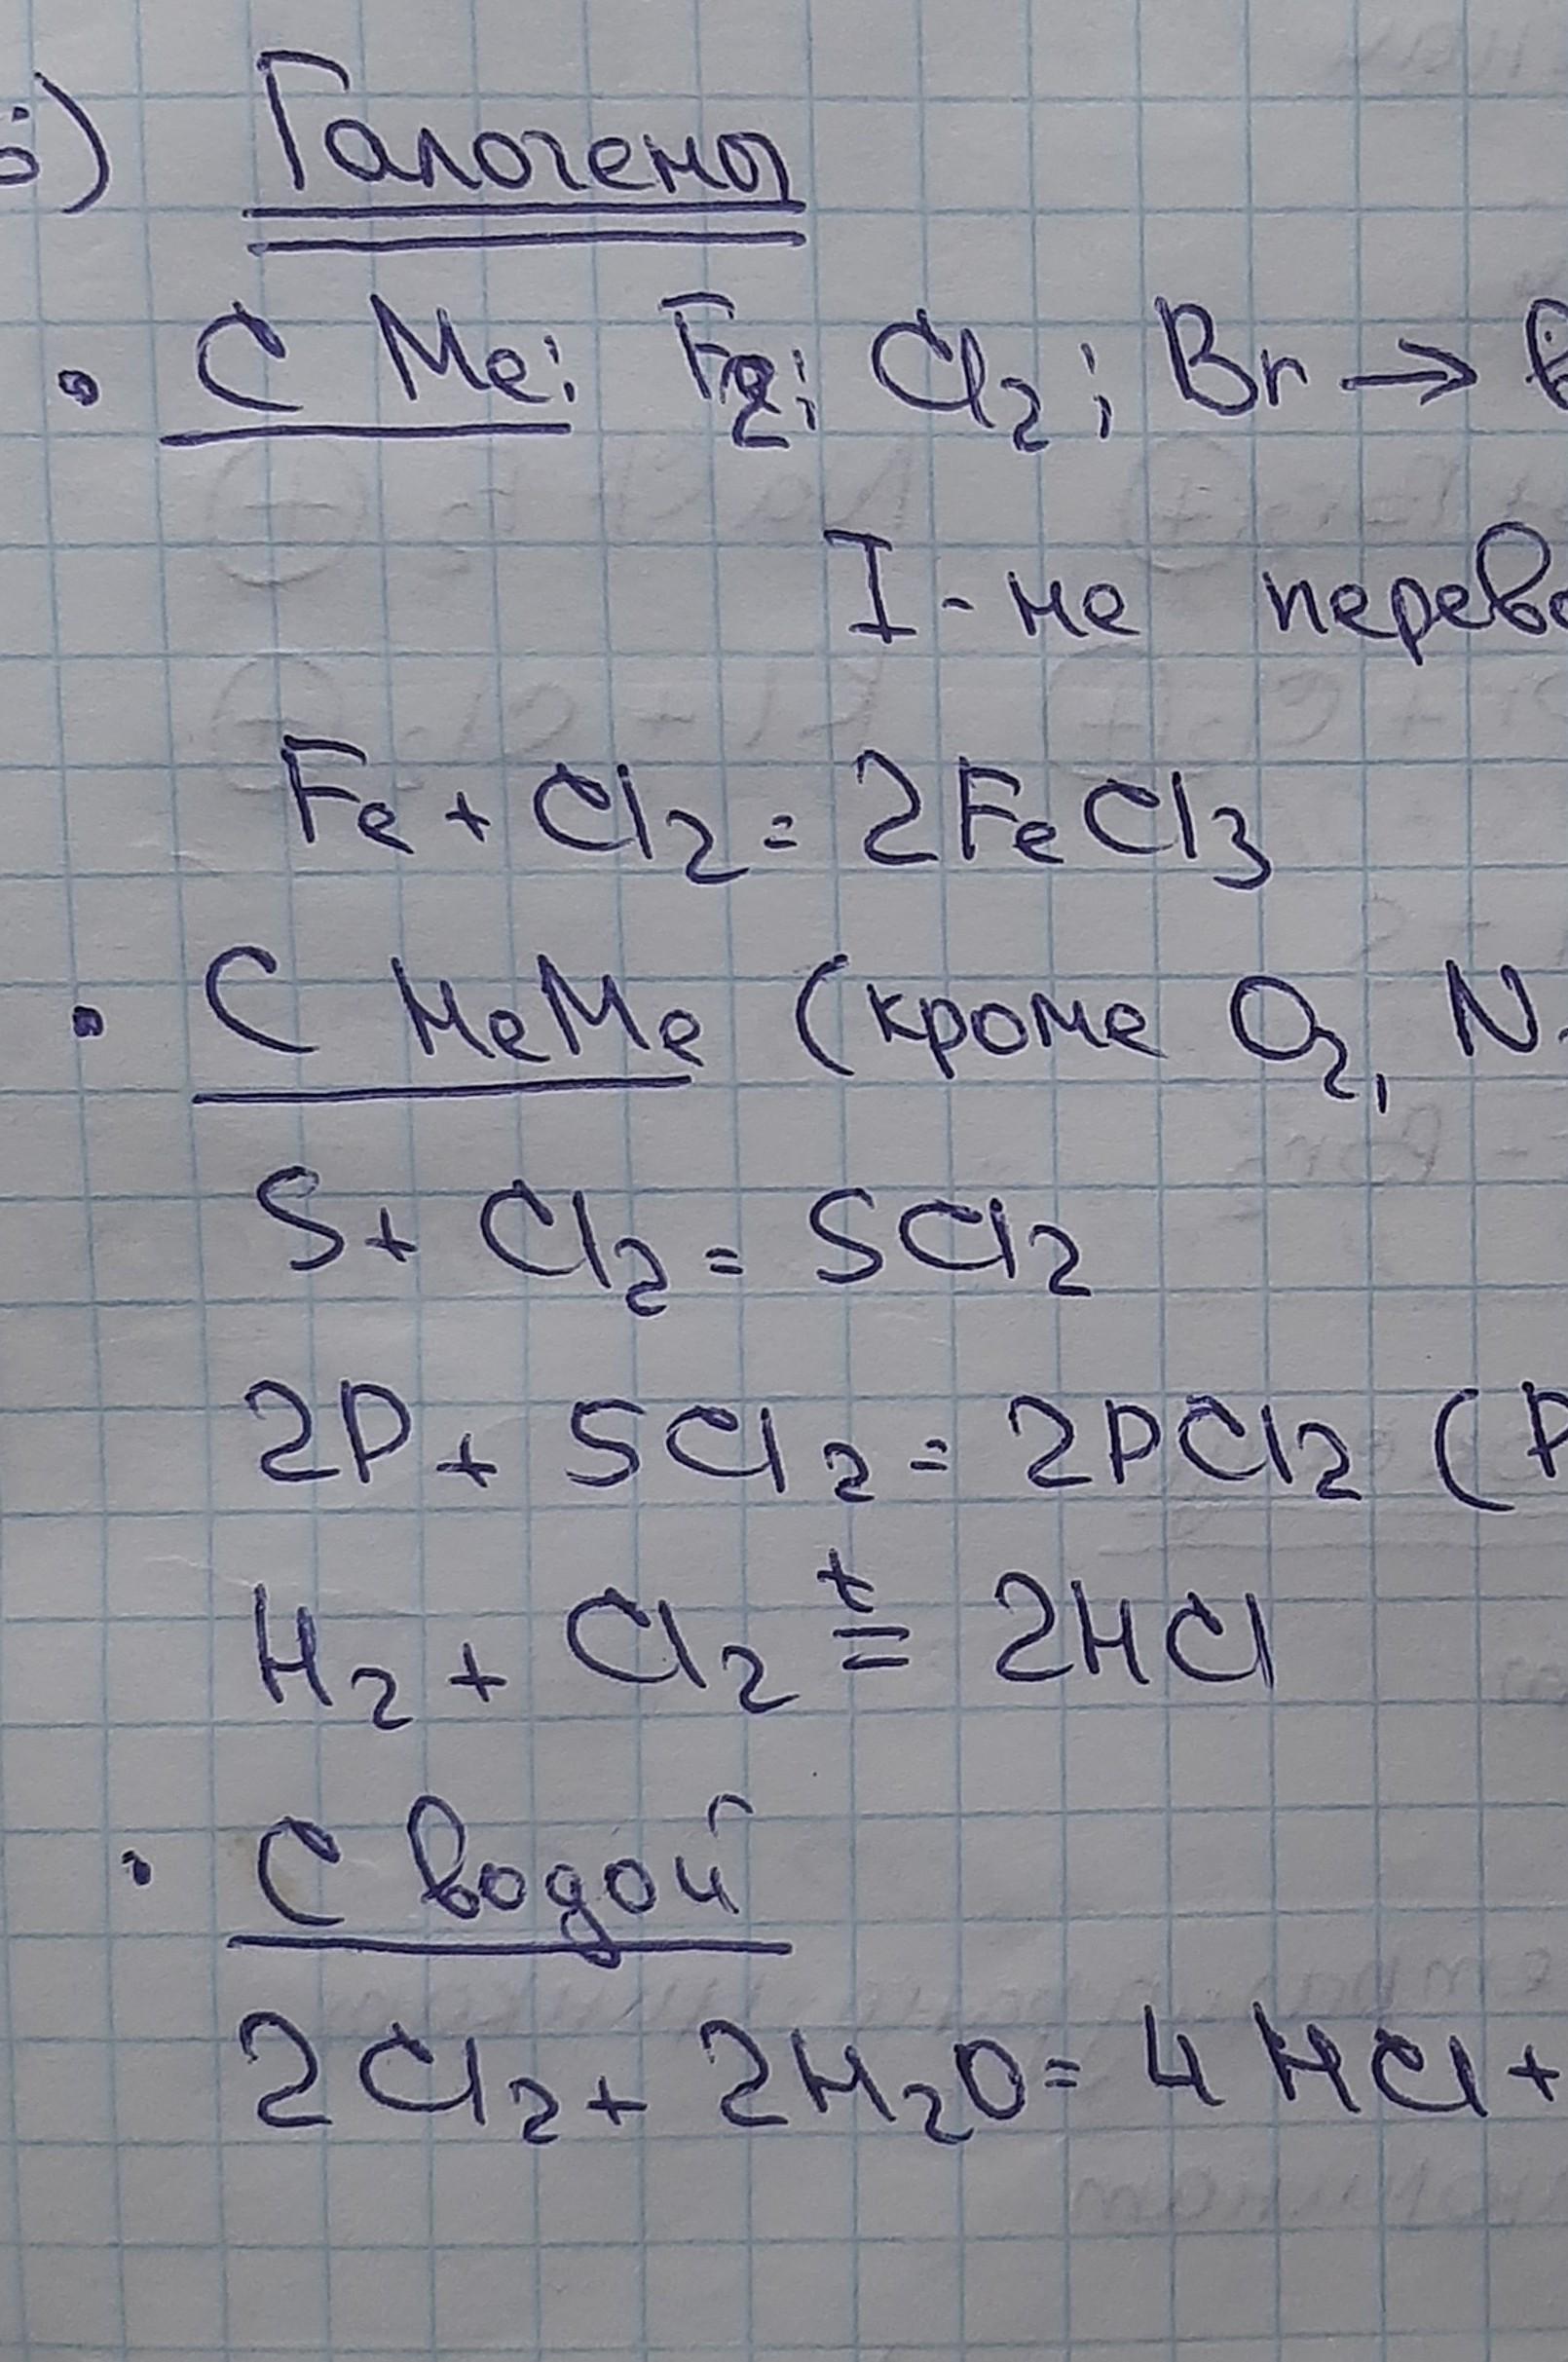 Галогены
• С Ме: F2; Cl2; Br →
I - не
Fe + Cl2 = 2FeCl3
• С неМе (кроме O2,
S + Cl2 = SCl2
2P + 5Cl2 = 2PCl2 (P
H2 + Cl2 t= 2HCl
• С водой
2Cl2 + 2H2O = 4HCl +